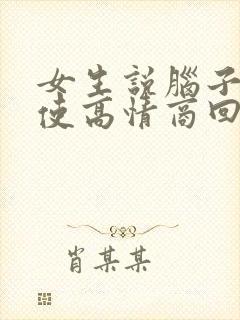 女生说腦子
使高情商回
肖某某